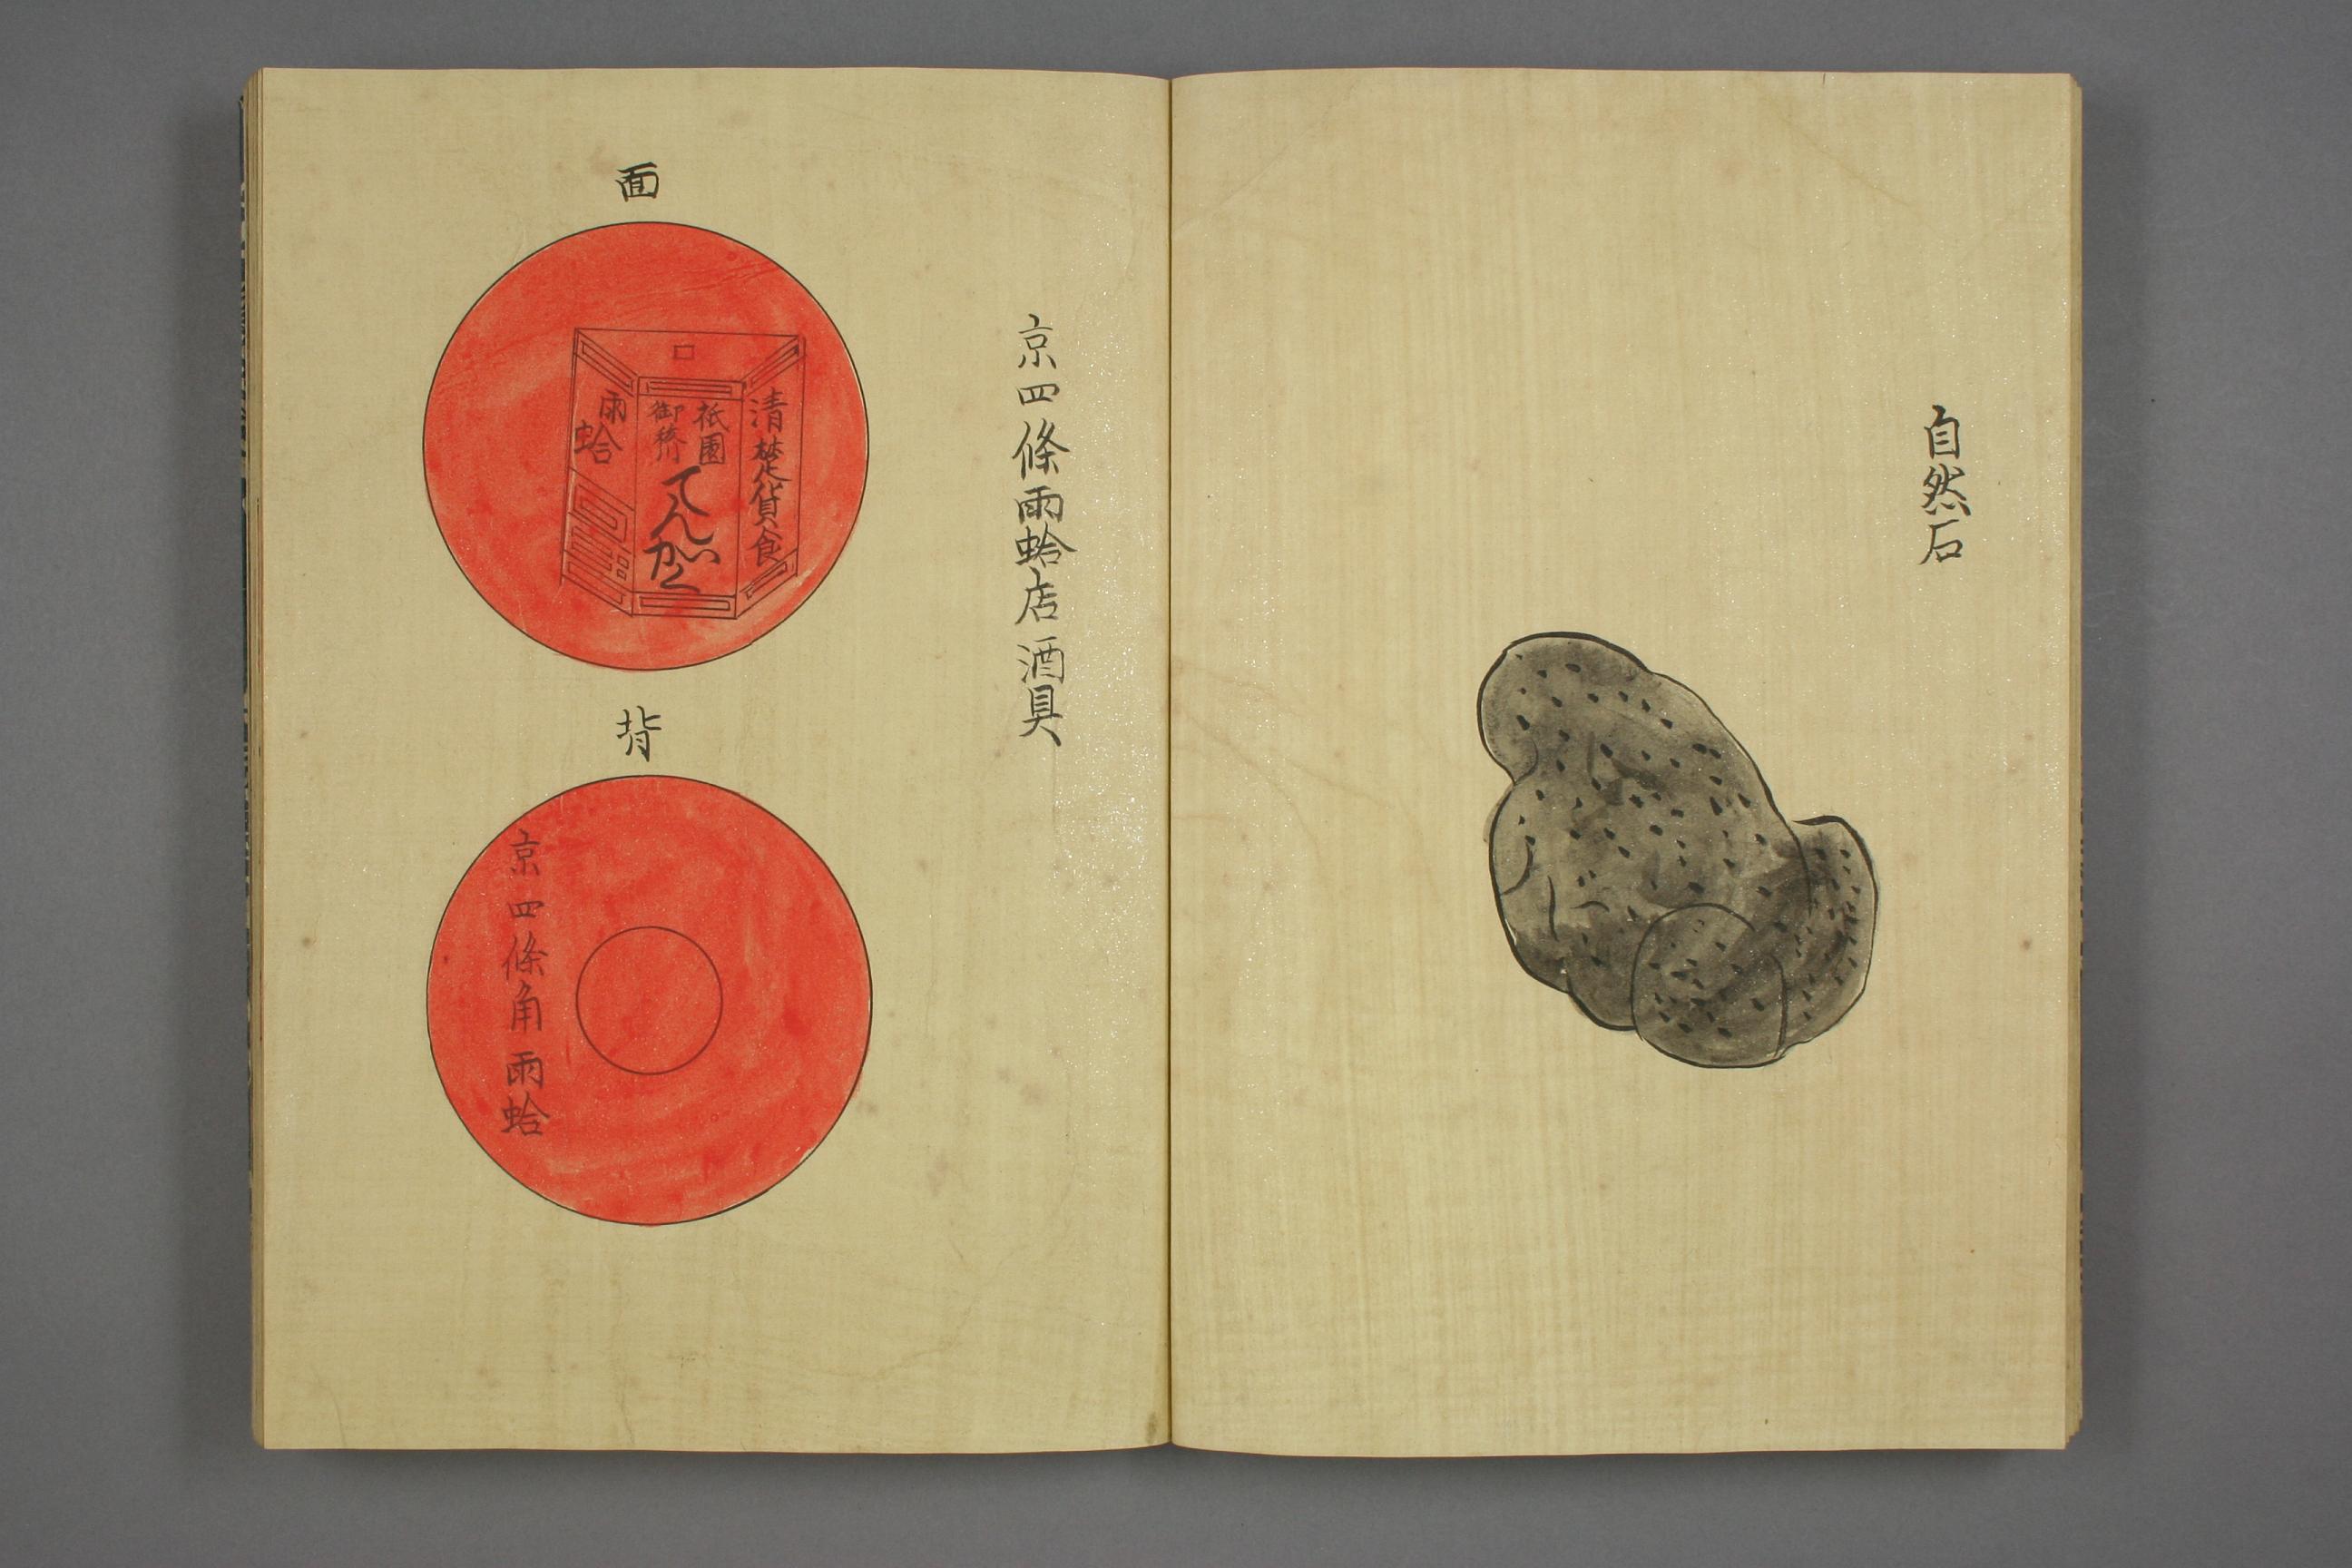 自然石
京四條雨蛤店酒具
面
清楚貨食
祇園
御
てんがく
雨蛤
背
京四條角雨蛤